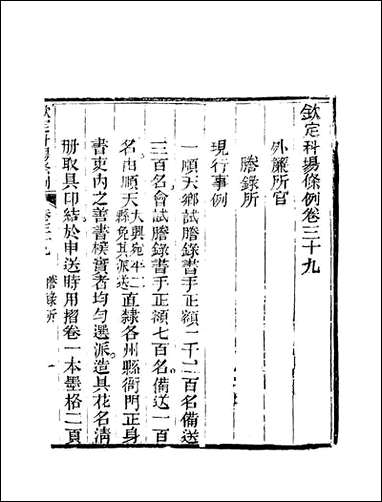 欽定科場條例卷三十九
外簾所官
謄錄所
現行事例
一順天鄉試謄錄書手正額一千二百名備送
三百名會試謄錄書手正額七百名備送一百
名由順天大興宛平二縣免其派送直隸各州縣衙門正身
書吏內之善書樸實者均勻選派造具花名清
册取具印結於申送時用摺卷一本墨格二頁
欽定科場條例
卷三十九 謄錄所 一